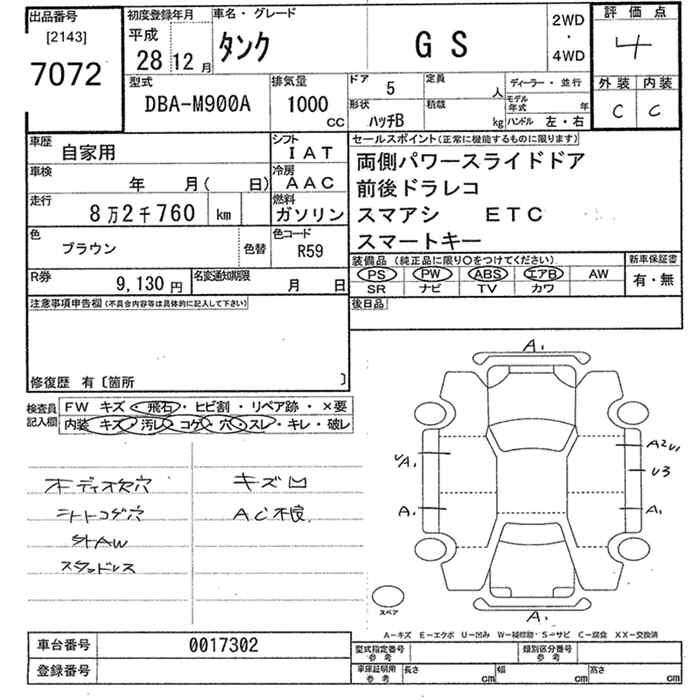 出品番号
[2143]
7072
初度登録年月
平成
28 12 月
車名・グレード
タンク GS
2WD
・
4WD
評価点
4
外装 内装
C C
型式
DBA-M900A
排気量
1000
CC
ドア 5
形状
ハッチB
定員 人
積載 kg
ディーラー・並行
モデル年式 年
ハンドル 左・右
車歴 自家用
シフト
IAT
車検 年 月( 日)
冷房
AAC
走行
8万2千760 km
燃料
ガソリン
色
ブラウン
色替
色コード
R59
R券 9,130 円
名変通知期限 月 日
セールスポイント(正常に機能するものに限ります)
両側パワースライドドア
前後ドラレコ
スマアシ ETC
スマートキー
装備品(純正品に限り○をつけてください)
PS PW ABS エアB AW
SR ナビ TV カワ
新車保証書
有・無
後日品
注意事項申告欄(不具合内容等は具体的に記入して下さい)
修復歴 有〔箇所 〕
検査員記入欄
FW キズ・飛石・ヒビ割・リペア跡・×要
内装 キズ・汚レ・コゲ・穴・スレ・キレ・破レ
キズ凹
シートコゲ穴
AC不良
社AW
スタッドレス
A1
UA1
A1
A2U1
U3
A1
A1
スペア
A−キズ E−エクボ U−凹み W−補修跡・S−サビ C−腐食 XX−交換済
車台番号 0017302
登録番号
型式指定番号
参考
類別区分番号
参考
車庫証明用
参考
長さ cm
幅 cm
高さ cm